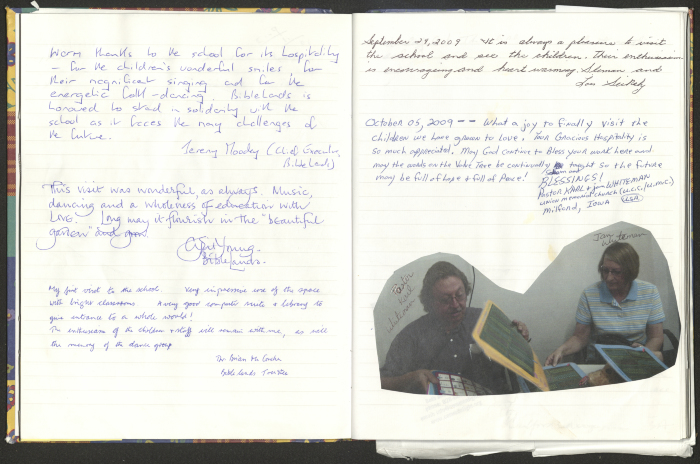 Warm thanks to the school for its hospitality
– for the children's wonderful smiles for
their magnificent singing and for the
energetic folk-dancing. BibleLands is
honoured to stand in solidarity with the
school as it faces the many challenges of
the future.
Jeremy Moodey (Chief Executive,
BibleLands)
This visit was wonderful as always. Music,
dancing and a wholeness of education with
LOVE. Long may it flourish in the "beautiful
garden"
Young.
BibleLands.
My first visit to the school. Very impressive use of the space
with bright classrooms. A very good computer suite & library to
give entrance to a whole world!
The enthusiasm of the children & staff will remain with me, as will
the memory of the dance group
Dr Brian Mc
BibleLands Trustee
September 29, 2009 It is always a pleasure to visit
the school and see the children. Their enthusiasm
is encouraging and heart warming. and
October 05, 2009 -- What a joy to finally visit the
children we have grown to love. Your Gracious Hospitality is
so much appreciated. May God continue to bless your work here and
may the words on the Vote Tree be continually taught so the future
may be full of hope & full of Peace!
BLESSINGS!
Pastor KARL & Jan WHITEMAN
union memorial church (U.C.C./U.M.C.)
Milford, IOWA USA
Pastor
Karl
Whiteman
Jan
Whiteman